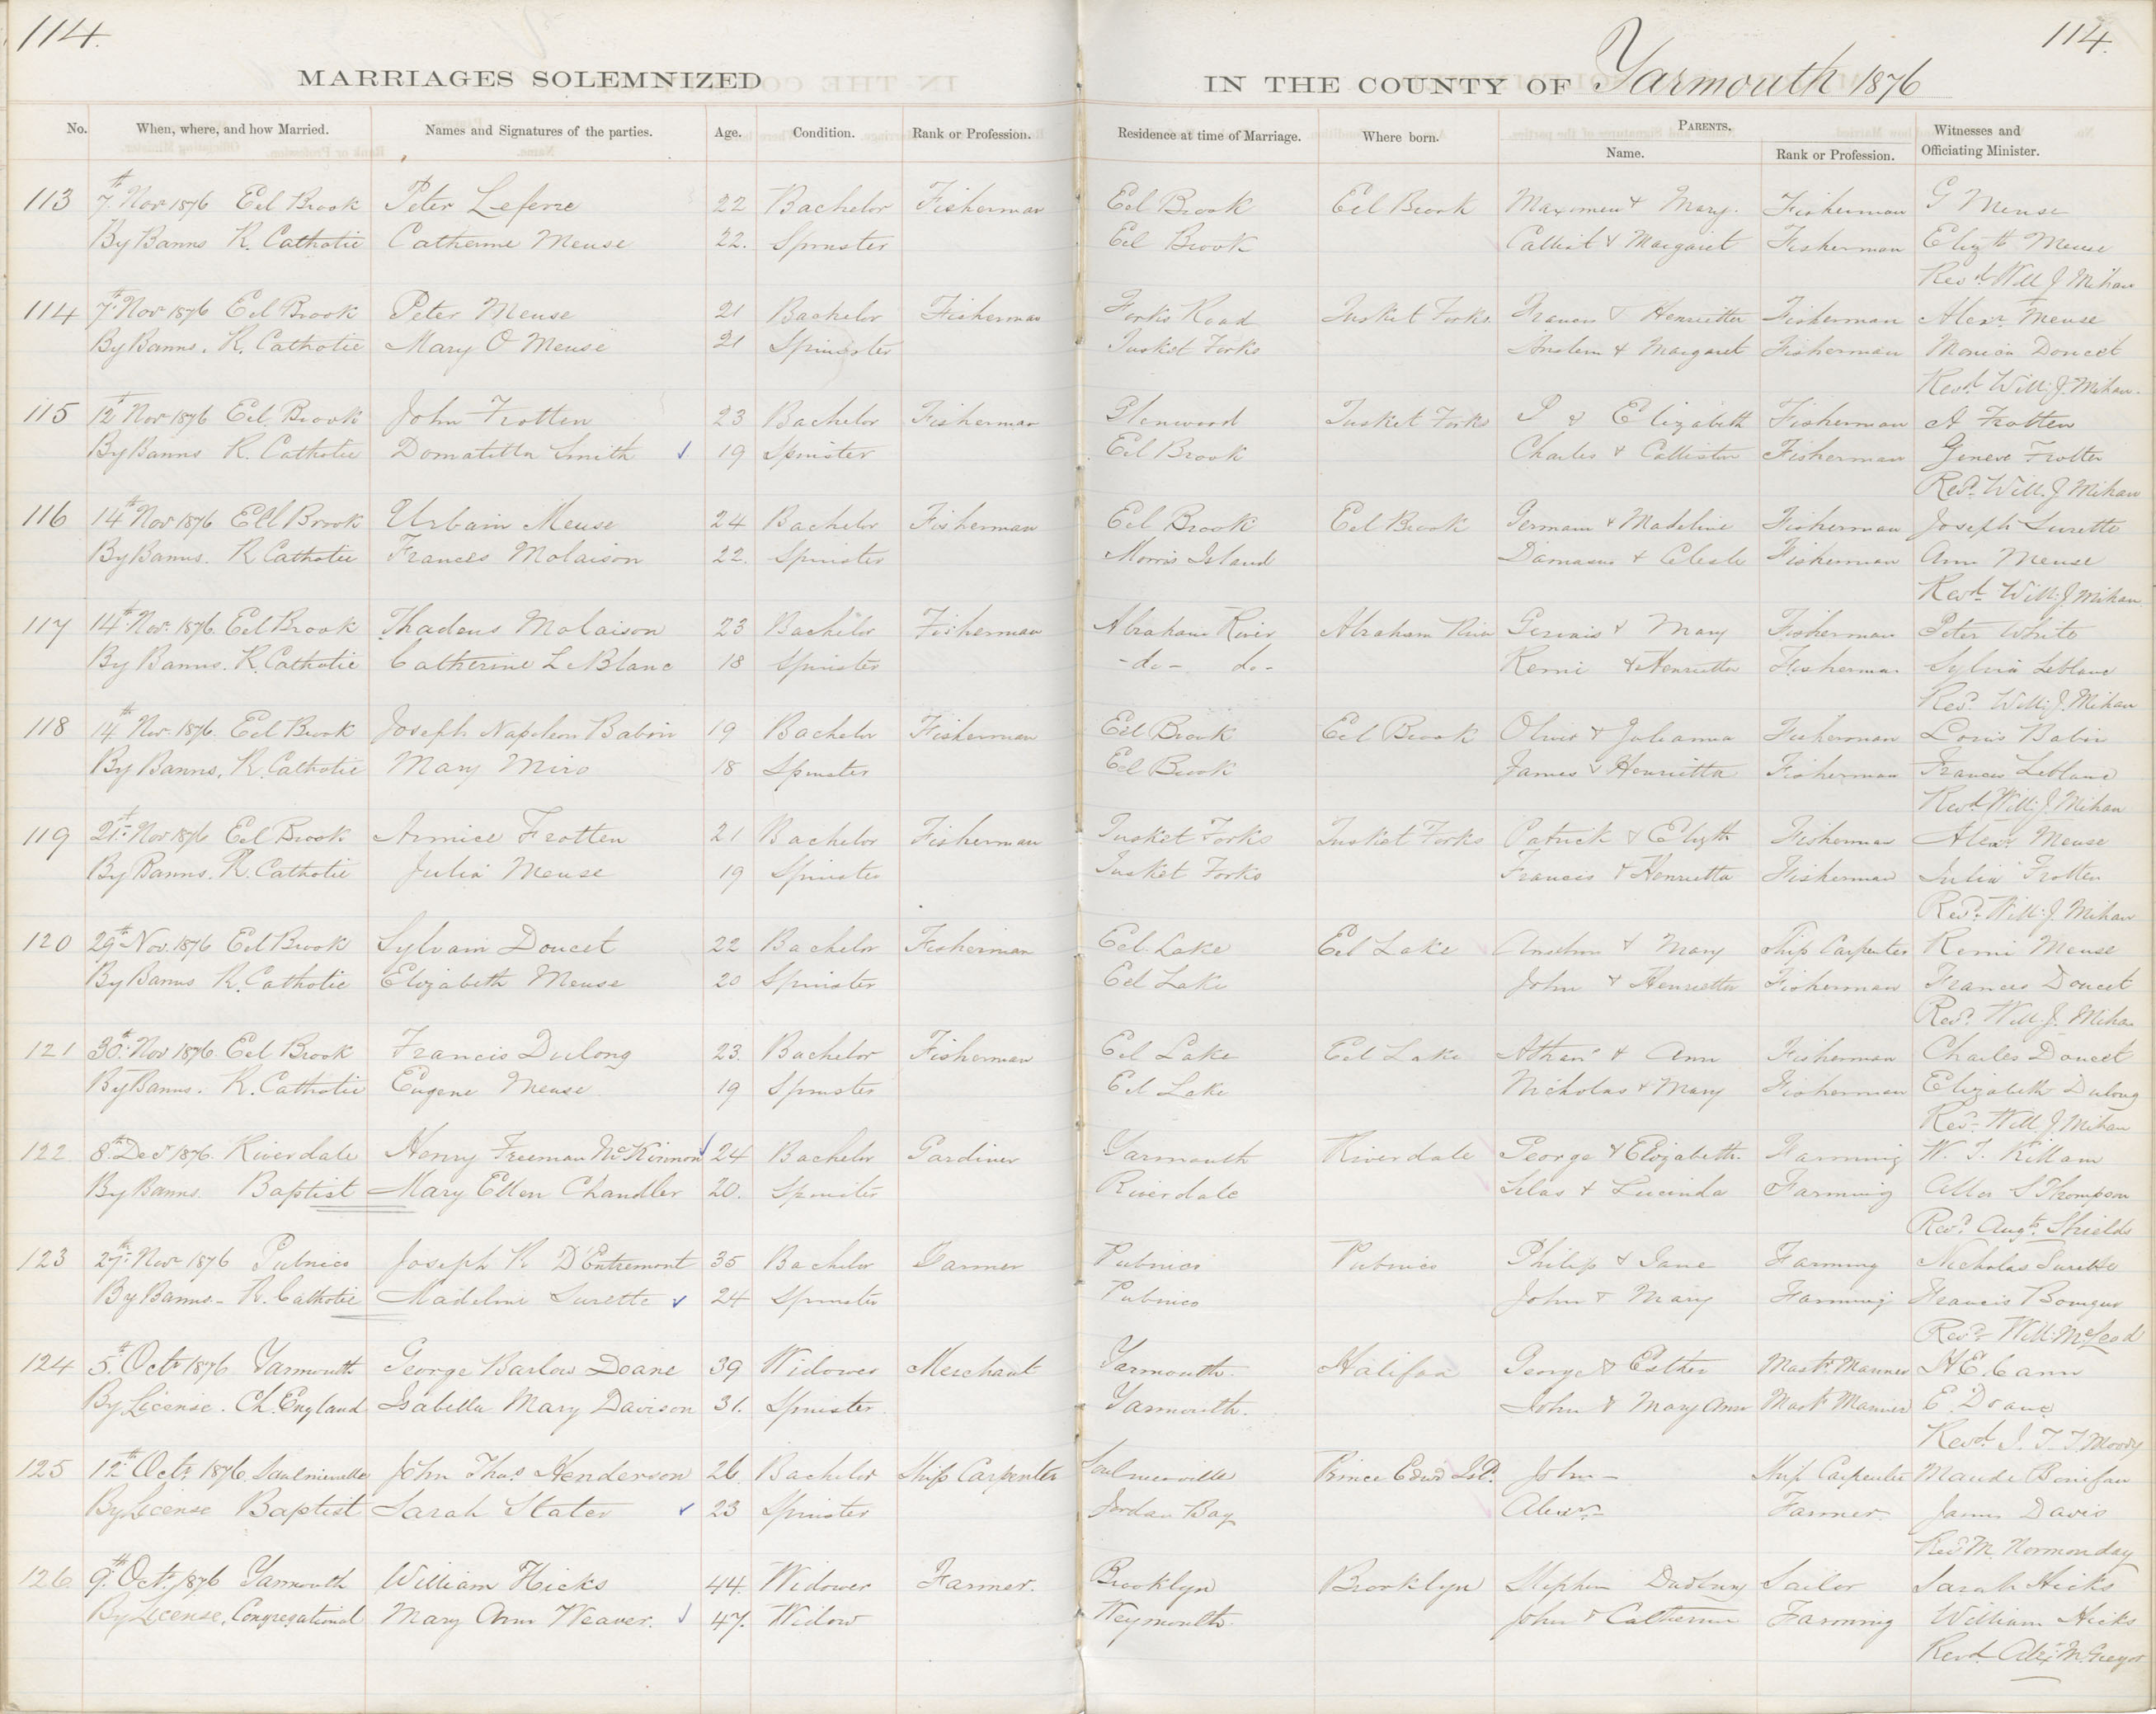 114. 114.
MARRIAGES SOLEMNIZED IN THE COUNTY OF Yarmouth 1876
No. When, where, and how Married. Names and Signatures of the parties. Age. Condition. Rank or Profession. Residence at time of Marriage. Where born. PARENTS. Name. Rank or Profession. Witnesses and Officiating Minister.
113 7th Nov 1876 Eel Brook Peter Lefevre 22 Bachelor Fisherman Eel Brook Eel Brook & Mary. Fisherman G Meuse
By Banns R. Catholic Catherine Meuse 22. Spinster Eel Brook Calixt & Margaret Fisherman Elizth Meuse
Revd Will J Mihan
114 7th Nov 1876 Eel Brook Peter Meuse 21 Bachelor Fisherman Forks Road Tusket Forks. Francis & Henrietta Fisherman Alexr Meuse
By Banns. R. Catholic Mary O Meuse 21 Spinster Tusket Forks Anslem & Margaret Fisherman Monica Doucet
Revd Will: J. Mihan.
115 12th Nov 1876 Eel Brook John Frotten 23 Bachelor Fisherman Glenwood Tusket Forks P & Elizabeth Fisherman A Frotten
By Banns R. Catholic Domatilla Smith 19 Spinster Eel Brook Charles & Fisherman Geneve Frotten
Revd. Will. J Mihan
116 14th Nov 1876 Eel Brook Urbain Meuse 24 Bachelor Fisherman Eel Brook Eel Brook Germain & Madeline Fisherman Joseph Surette
By Banns. R Catholic Frances Molaison 22. Spinster Morris Island Damasus & Celeste Fisherman Ann Meuse
Revd Will: J Mihan
117 14th Nov. 1876. Eel Brook Thadeus Molaison 23 Bachelor Fisherman Abraham River Abraham River Gervais & Mary Fisherman Peter White
By Banns. R. Catholic Catherine LeBlanc 18 Spinster -do- do- Remi & Henrietta Fisherman Sylvia Leblanc
Revd. Will: J. Mihan
118 14th Nov. 1876. Eel Brook Joseph Napoleon Babin 19 Bachelor Fisherman Eel Brook Eel Brook Oliver & Julianna Fisherman Louis Babin
By Banns. R. Catholic Mary Miro 18 Spinster Eel Brook James & Henrietta Fisherman Frances Leblanc
Revd Will: J. Mihan
119 21st Nov 1876 Eel Brook Armice Frotten 21 Bachelor Fisherman Tusket Forks Tusket Forks Patrick & Elizth Fisherman Alexr Meuse
By Banns. R. Catholic Julia Meuse 19 Spinster Tusket Forks Francis & Henrietta Fisherman Julia Frotten
Revd. Will: J Mihan
120 29th Nov. 1876 Eel Brook Sylvain Doucet 22 Bachelor Fisherman Eel Lake Eel Lake & Mary Ship Carpenter Remi Meuse
By Banns R. Catholic Elizabeth Meuse 20 Spinster Eel Lake John & Henrietta Fisherman Frances Doucet
Revd. Will. J. Mihan
121 30th Nov 1876 Eel Brook Francis Dulong 23. Bachelor Fisherman Eel Lake Eel Lake Athans & Ann Fisherman Charles Doucet
By Banns. R. Catholic Eugene Meuse 19 Spinster Eel Lake Nicholas & Mary Fisherman Elizabeth Dulong
Revd. Will J. Mihan
122 8th Decr 1876. Riverdale Henry Freeman McKinnon 24 Bachelor Gardiner Yarmouth Riverdale George & Elizabeth. Farming W. T. Killam
By Banns. Baptist Mary Ellen Chandler 20. Spinster Riverdale Silas & Lucinda Farming S Thompson
Revd Augts Shields
123 27th Nov 1876 Pubnico Joseph R D'Entremont 35 Bachelor Farmer Pubnico Pubnico Philip & Jane Farming Nicholas Surette
By Banns - R. Catholic Madeline Surette 24 Spinster Pubnico John & Mary Farming Francis Bourque
Revd. Will: McLeod
124 5th Octr 1876 Yarmouth George Barlow Doane 39 Widower Merchant Yarmouth. Halifax George & Esther Mastr Mariner H E. Cann
By License. Ch. England Isabella Mary Davison 31. Spinster Yarmouth. John & Mary Ann Mastr Mariner E. Doane
Revd. J. T. T Moody
125 12th Octr 1876. Saulnierville John Thos Henderson 26. Bachelor Ship Carpenter Saulnierville Prince Edwd Isd. John - Ship Carpenter Maude
By License Baptist Sarah Slater 23 Spinster Jordan Bay Alexr - Farmer James Davis
Revd M. Normonday
126 9th Octr 1876 Yarmouth William Hicks 44. Widower Farmer. Brooklyn Brooklyn Stephen Sailor Sarah Hicks
By License, Congregational Mary Ann Weaver. 47. Widow Weymouth. John & Catherine Farming William Hicks
Revd. Alex McGregor